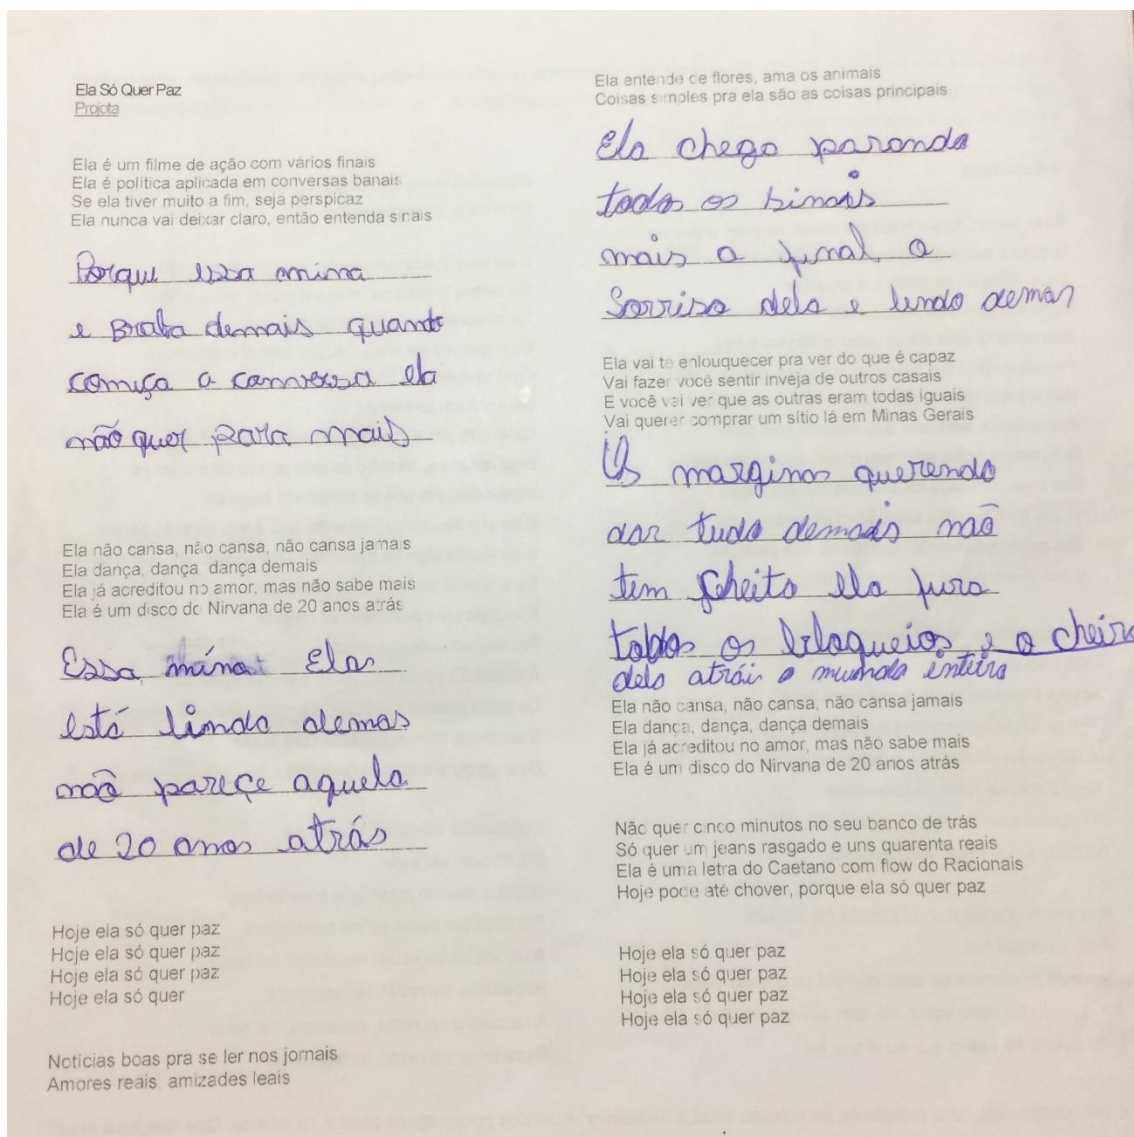 Ela Só Quer Paz
Projota
Ela é um filme de ação com vários finais
Ela é política aplicada em conversas banais
Se ela tiver muito a fim, seja perspicaz
Ela nunca vai deixar claro, então entenda sinais
Porque essa mina
e Braba demais quanto
começa a conversa ela
não quer para mais
Ela não cansa, não cansa, não cansa jamais
Ela dança, dança dança demais
Ela já acreditou no amor, mas não sabe mais
Ela é um disco do Nirvana de 20 anos atrás
Essa Ela
está linda demas
não pareçe aquela
de 20 anos atrás
Hoje ela só quer paz
Hoje ela só quer paz
Hoje ela só quer paz
Hoje ela só quer
Notícias boas pra se ler nos jornais
Amores reais, amizades leais
Ela entende de flores, ama os animais
Coisas simples pra ela são as coisas principais
Ela chega parando
todos os sinais
mais a final o
Sorriso dela e lindo demas
Ela vai te enlouquecer pra ver do que é capaz
Vai fazer você sentir inveja de outros casais
E você vai ver que as outras eram todas iguais
Vai querer comprar um sítio lá em Minas Gerais
Os querendo
dar tudo demais não
tem ela fura
todos os bloqueios e o cheiro
dela atrái o mundo inteiro
Ela não cansa, não cansa, não cansa jamais
Ela dança, dança, dança demais
Ela já acreditou no amor, mas não sabe mais
Ela é um disco do Nirvana de 20 anos atrás
Não quer cinco minutos no seu banco de trás
Só quer um jeans rasgado e uns quarenta reais
Ela é uma letra do Caetano com flow do Racionais
Hoje pode até chover, porque ela só quer paz
Hoje ela só quer paz
Hoje ela só quer paz
Hoje ela só quer paz
Hoje ela só quer paz